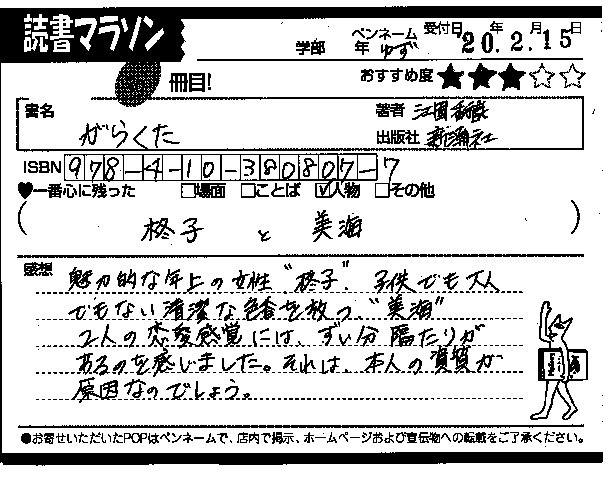 読書マラソン
冊目!
学部 年 ペンネーム ゆず 受付日 20年2月15日
おすすめ度 ★★★☆☆
書名 がらくた
著者 江國香織
出版社 新潮社
ISBN 978-4-10-380807-7
♥一番心に残った □場面 □ことば ☑人物 □その他
(柊子 と 美海)
感想 魅力的な年上の女性“柊子”、子供でも大人
でもない清潔な色香を放つ、“美海”
2人の恋愛感覚には、ずい分隔たりが
あるのを感いました。それは、本人の資質が
原因なのでしょう。
●お寄せいただいたPOPはペンネームで、店内で掲示、ホームページおよび宣伝物への転載をご了承ください。